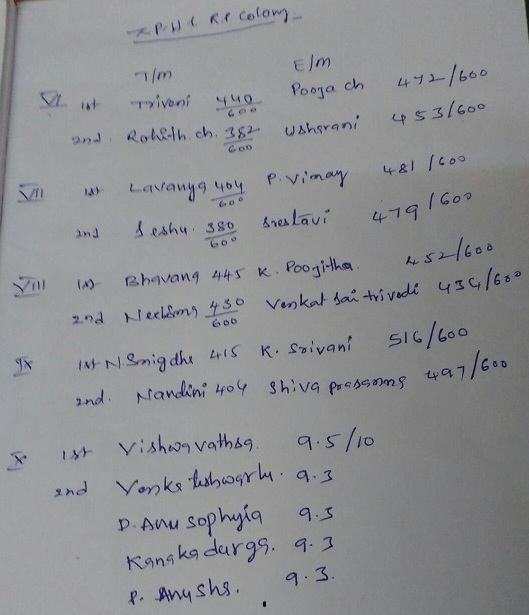 Z P.H.S R.P Colony
T/m E/m
VI 1st Triveni 440/600 Pooja ch 472/600
2nd. Rohith.ch. 382/600 Usharani 453/600
VII 1st Lavanya 404/600 P. Vinay 481/600
2nd Seshu. 380/600 Sreslavi 479/600
VIII 1st Bhavana 445 K. Poojitha. 452/600
2nd 430/600 Venkat Sai trivedi 434/600
IX 1st N.Snigdha 415 K. Srivani 516/600
2nd. Nandini 404 Shiva 497/600
X 1st Vishwavathsa. 9.5/10
2nd Venkateshwarlu. 9.3
D. Anu sophyia 9.3
Kanakadurga. 9.3
P. Anusha. 9.3.